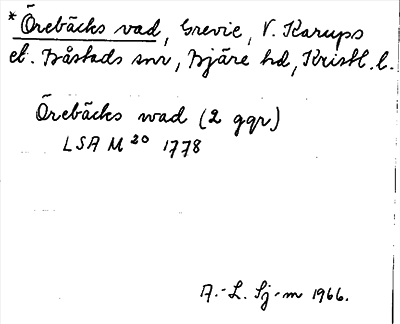 * Örebäcks vad, Grevie, V. Karups
et. Båstads snr, Bjäre hd, Kristl. l.
Örebäcks wad (2 ggr)
LSA M 20 1778
A.-L. Sj-m 1966.